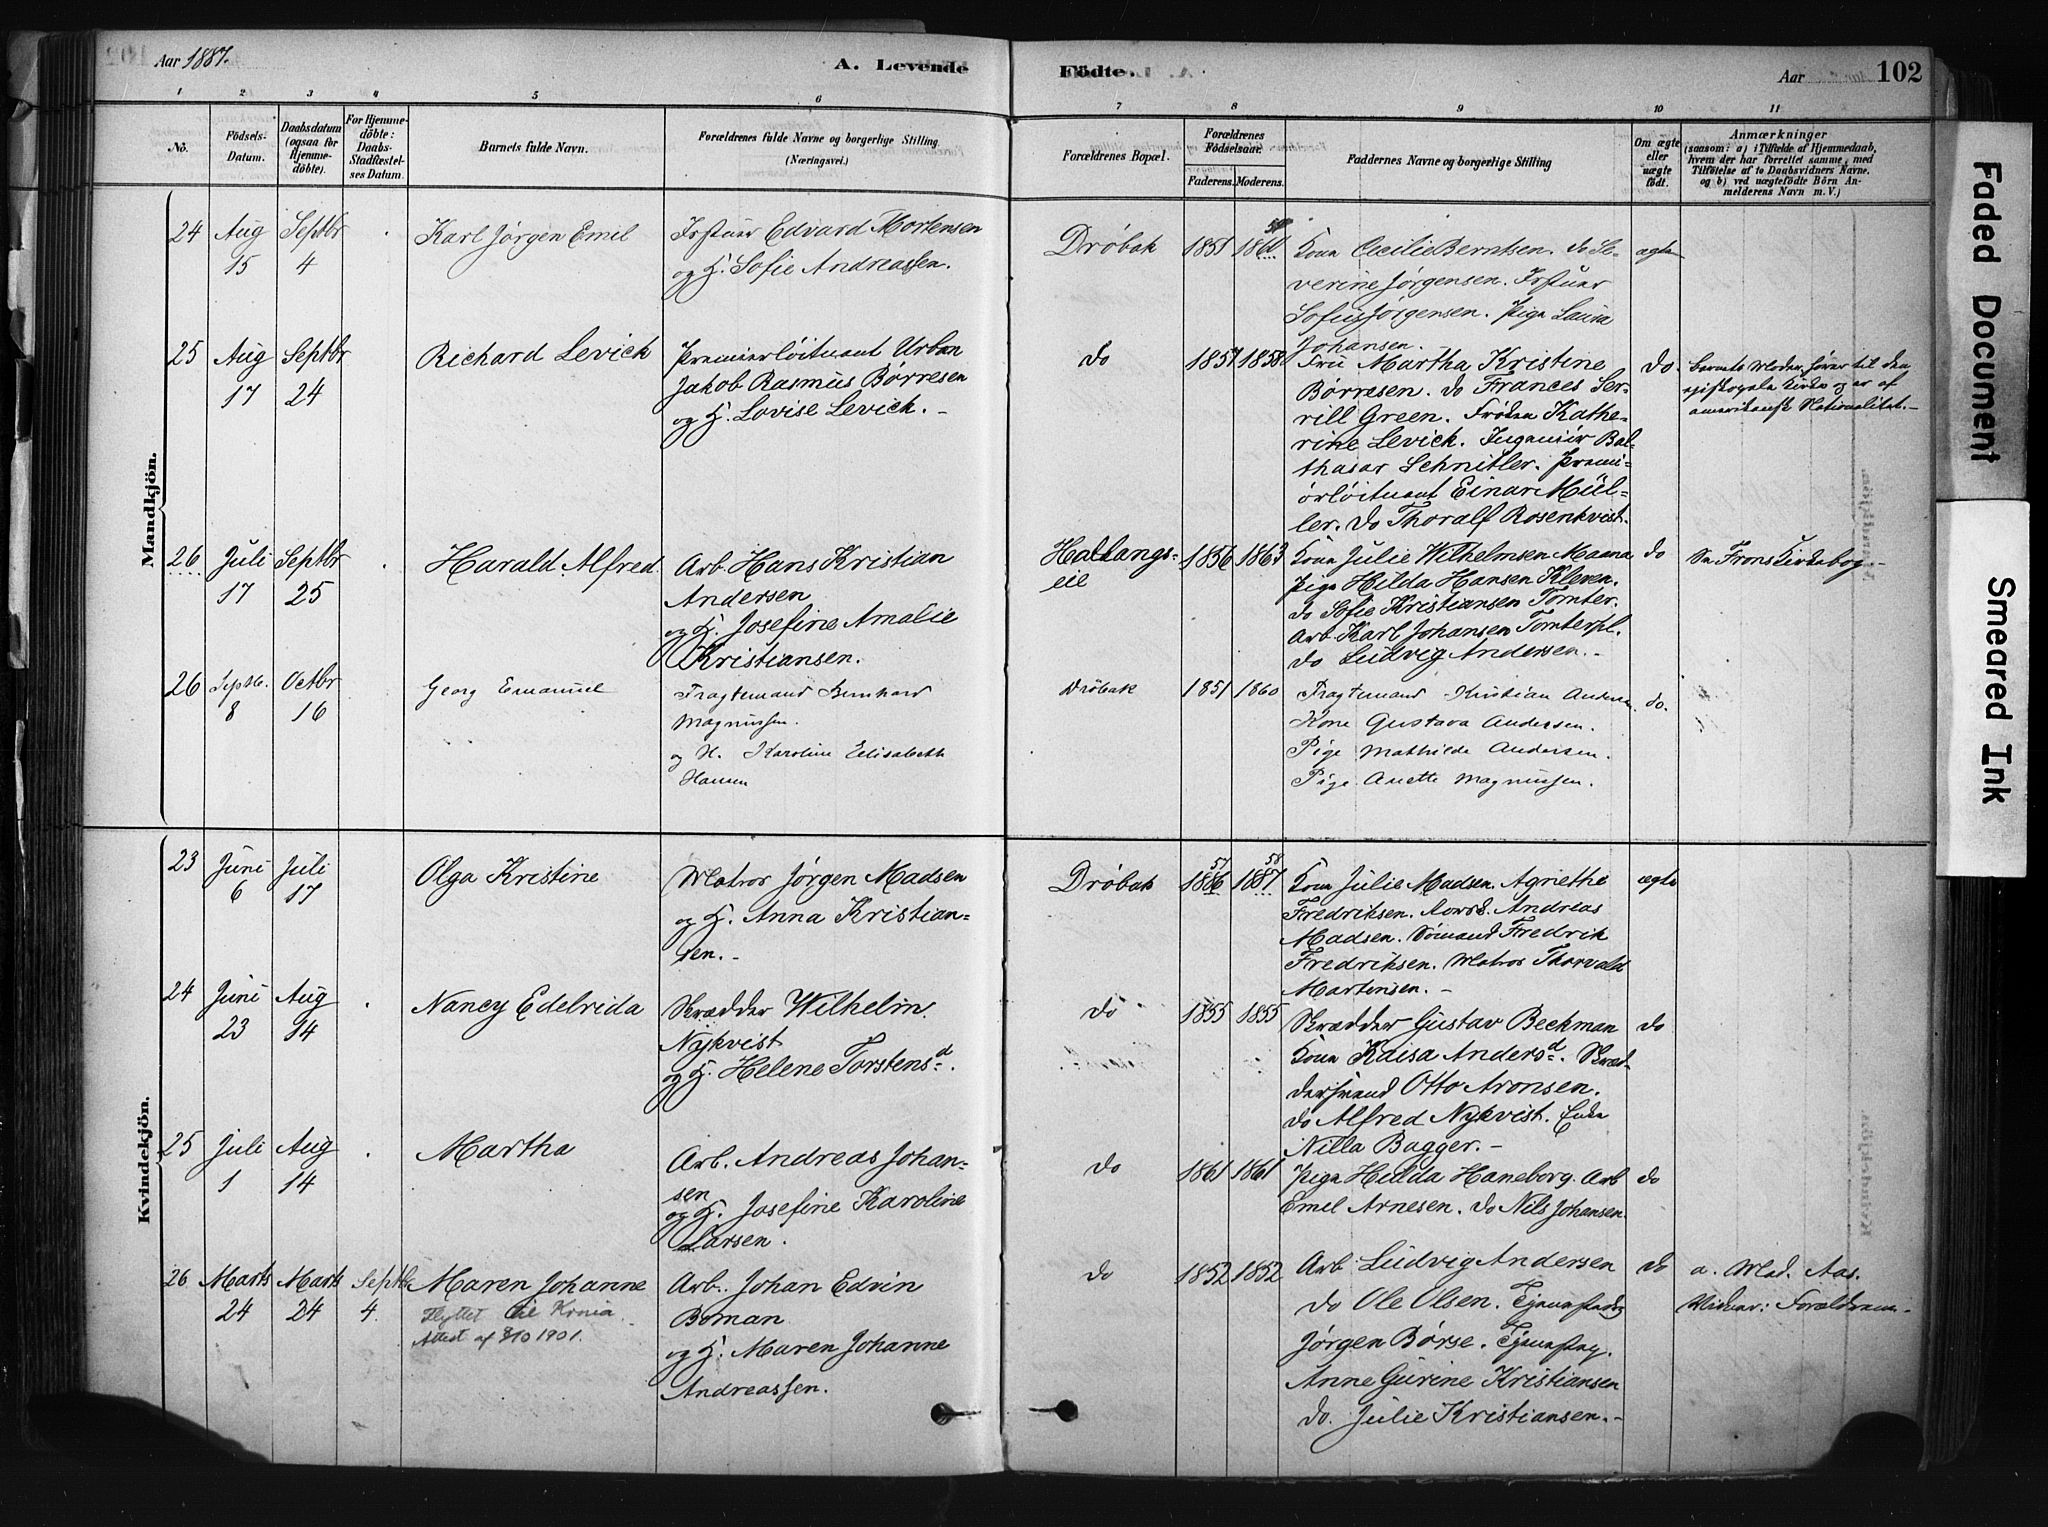 Aar 1887.
A. Levende
Födte.
Aar
102
1
2
3
4
5
6
7
8
9
10
11
No.
Födsels-
Datum.
Daabsdatum
(ogsaa for
Hjemme-
döbte).
For Hjemme-
döbte:
Daabs-
Stadfæstel-
ses Datum.
Barnets fulde Navn.
Forældrenes fulde Navne og borgerlige Stilling
(Næringsvei.)
Forældrenes Bopæl.
Forældrenes
Födselsaar.
Faderens.
Moderens.
Faddernes Navne og borgerlige Stilling
Om ægte
eller
uægte
födt.
Anmærkninger
(saasom: a) i Tilfælde af Hjemmedaab,
hvem der har forrettet samme, med
Tilföielse af to Daabsvidners Navne,
og b) ved uægtefödte Börn An-
melderens Navn m. V.)
Mandkjön.
24
Aug
15
Septbr
4
Karl Jørgen Emil
Edvard Mortensen
og H. Sofie Andreassen.
Drøbak
1851
Kone Cecilie Berntsen. do Se-
verine Jørgensen.
Sofus Jørgensen. Pige Laura
Johansen.
ægte
25
Aug
17
Septbr
24
Richard Levick
Premierløitnant Urban
Jakob Rasmus Børresen
og H. Lovise Levick. -
do
1857
1858
Fru Martha Kristine
Børresen. do Frances Ser-
rill Green. Frøken Kathe-
rine Levick. Ingeniør Bal-
thasar Schnitler. Premi-
ørløitnant Einar Mül-
ler. do Thoralf Rosenkvist.
do.
Barnets Moder hører til den
episkopale Kirke og er af
amerikansk Nationalitet. -
26
Juli
17
Septbr
25
Harald Alfred
Arb. Hans Kristian
Andersen
og H. Josefine Amalie
Kristiansen.
Hallangs-
eie
1856
1863
Kone Julie Wilhelmsen Maana
Pige Hilda Hansen Kleven.
do Sofie Kristiansen Tomter.
Arb. Karl Johansen Tomterpl.
do Ludvig Andersen. -
do
Se Frons Kirkebog. -
26
Septb.
8
Octbr
16
Georg Emanuel
Fragtemand Bernhard
Magnussen.
og H. Karoline Elisabeth
Hansen
Drøbak
1851
1860
Fragtemand Kristian Andersen.
Kone Gustava Andersen.
Pige Mathilde Andersen.
Pige Anette Magnussen.
do.
Kvindekjön.
23
Juni
6
Juli
17
Olga Kristine
Matros Jørgen Madsen
og H. Anna Kristian-
sen. -
Drøbak
57
1886
58
1887
Kone Julie Madsen. Agnethe
Fredriksen. Andreas
Madsen. Sømand Fredrik
Fredriksen. Matros Thorvald
Martensen. -
ægte
24
Juni
23
Aug
14
Nancy Edelrida
Skrædder Wilhelm
Nykvist
og H. Helene Torstensd.
do
1855
1855
Skrædder Gustav Beckman
Kone Kaisa Andersd. Skræd-
dersvend Otto Aronsen.
do Alfred Nykvist. Enke
Nilla Bagger. -
do
25
Juli
1
Aug
14
Martha
Arb. Andreas Johan-
sen
og H. Josefine Karoline
Larsen.
do
1861
1861
Pige Hilda Haneborg. Arb
Emil Arnesen. do Nils Johansen.
do
26
Marts
24
Marts
24
Septbr
4.
Maren Johanne
Flyttet til Krnia.
Attest af 8/10 1901.
Arb. Johan Edvin
Boman
og H. Maren Johanne
Andreassen.
do
1852
1852
Arb Ludvig Andersen
do Ole Olsen.
Jørgen Børse.
Anne Gurine Kristiansen
do. Julie Kristiansen. -
do
a. Mad. Aas.
Vidner: Forældrene. -
Faded Document
Smeared Ink